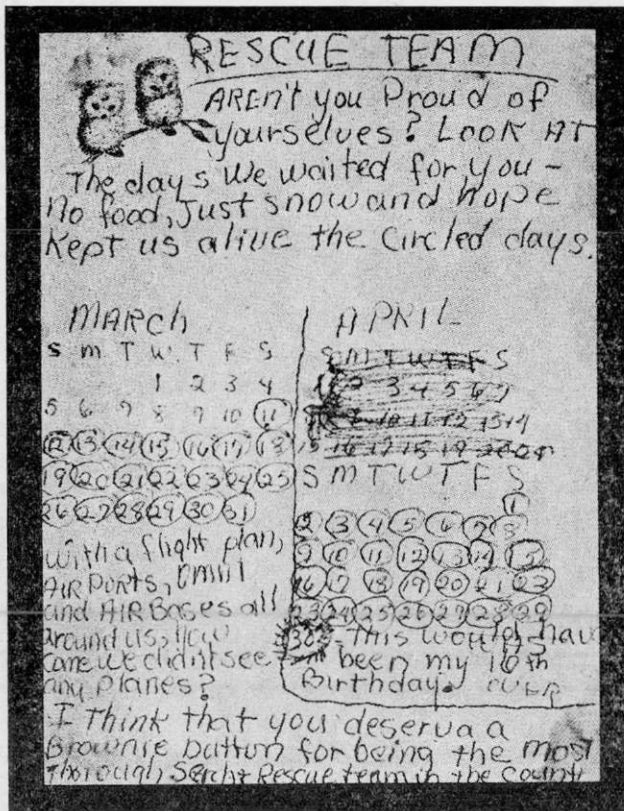 RESCUE TEAM
AREN't you Proud of
yourselves? LOOK AT
The days we waited for you -
No food, Just snow and hope
Kept us alive the Circled days.
MARCH
S M T W T F S
1 2 3 4
5 6 7 8 9 10 11
12 13 14 15 16 17 18
19 20 21 22 23 24 25
26 27 28 29 30 31
with a flight plan,
AIRPORTS, OMNI
and AIR Bases all
around us, how
come we didn't see
any planes?
APRIL
S M T W T F S
S M T W T F S
1
2 3 4 5 6 7 8
9 10 11 12 13 14 15
16 17 18 19 20 21 22
23 24 25 26 27 28 29
30 - This would hav
been my 16th
Birthday. OVER
I Think that you deserva a
Brownie button for being the most
Thorough Serch+ Rescue team in the